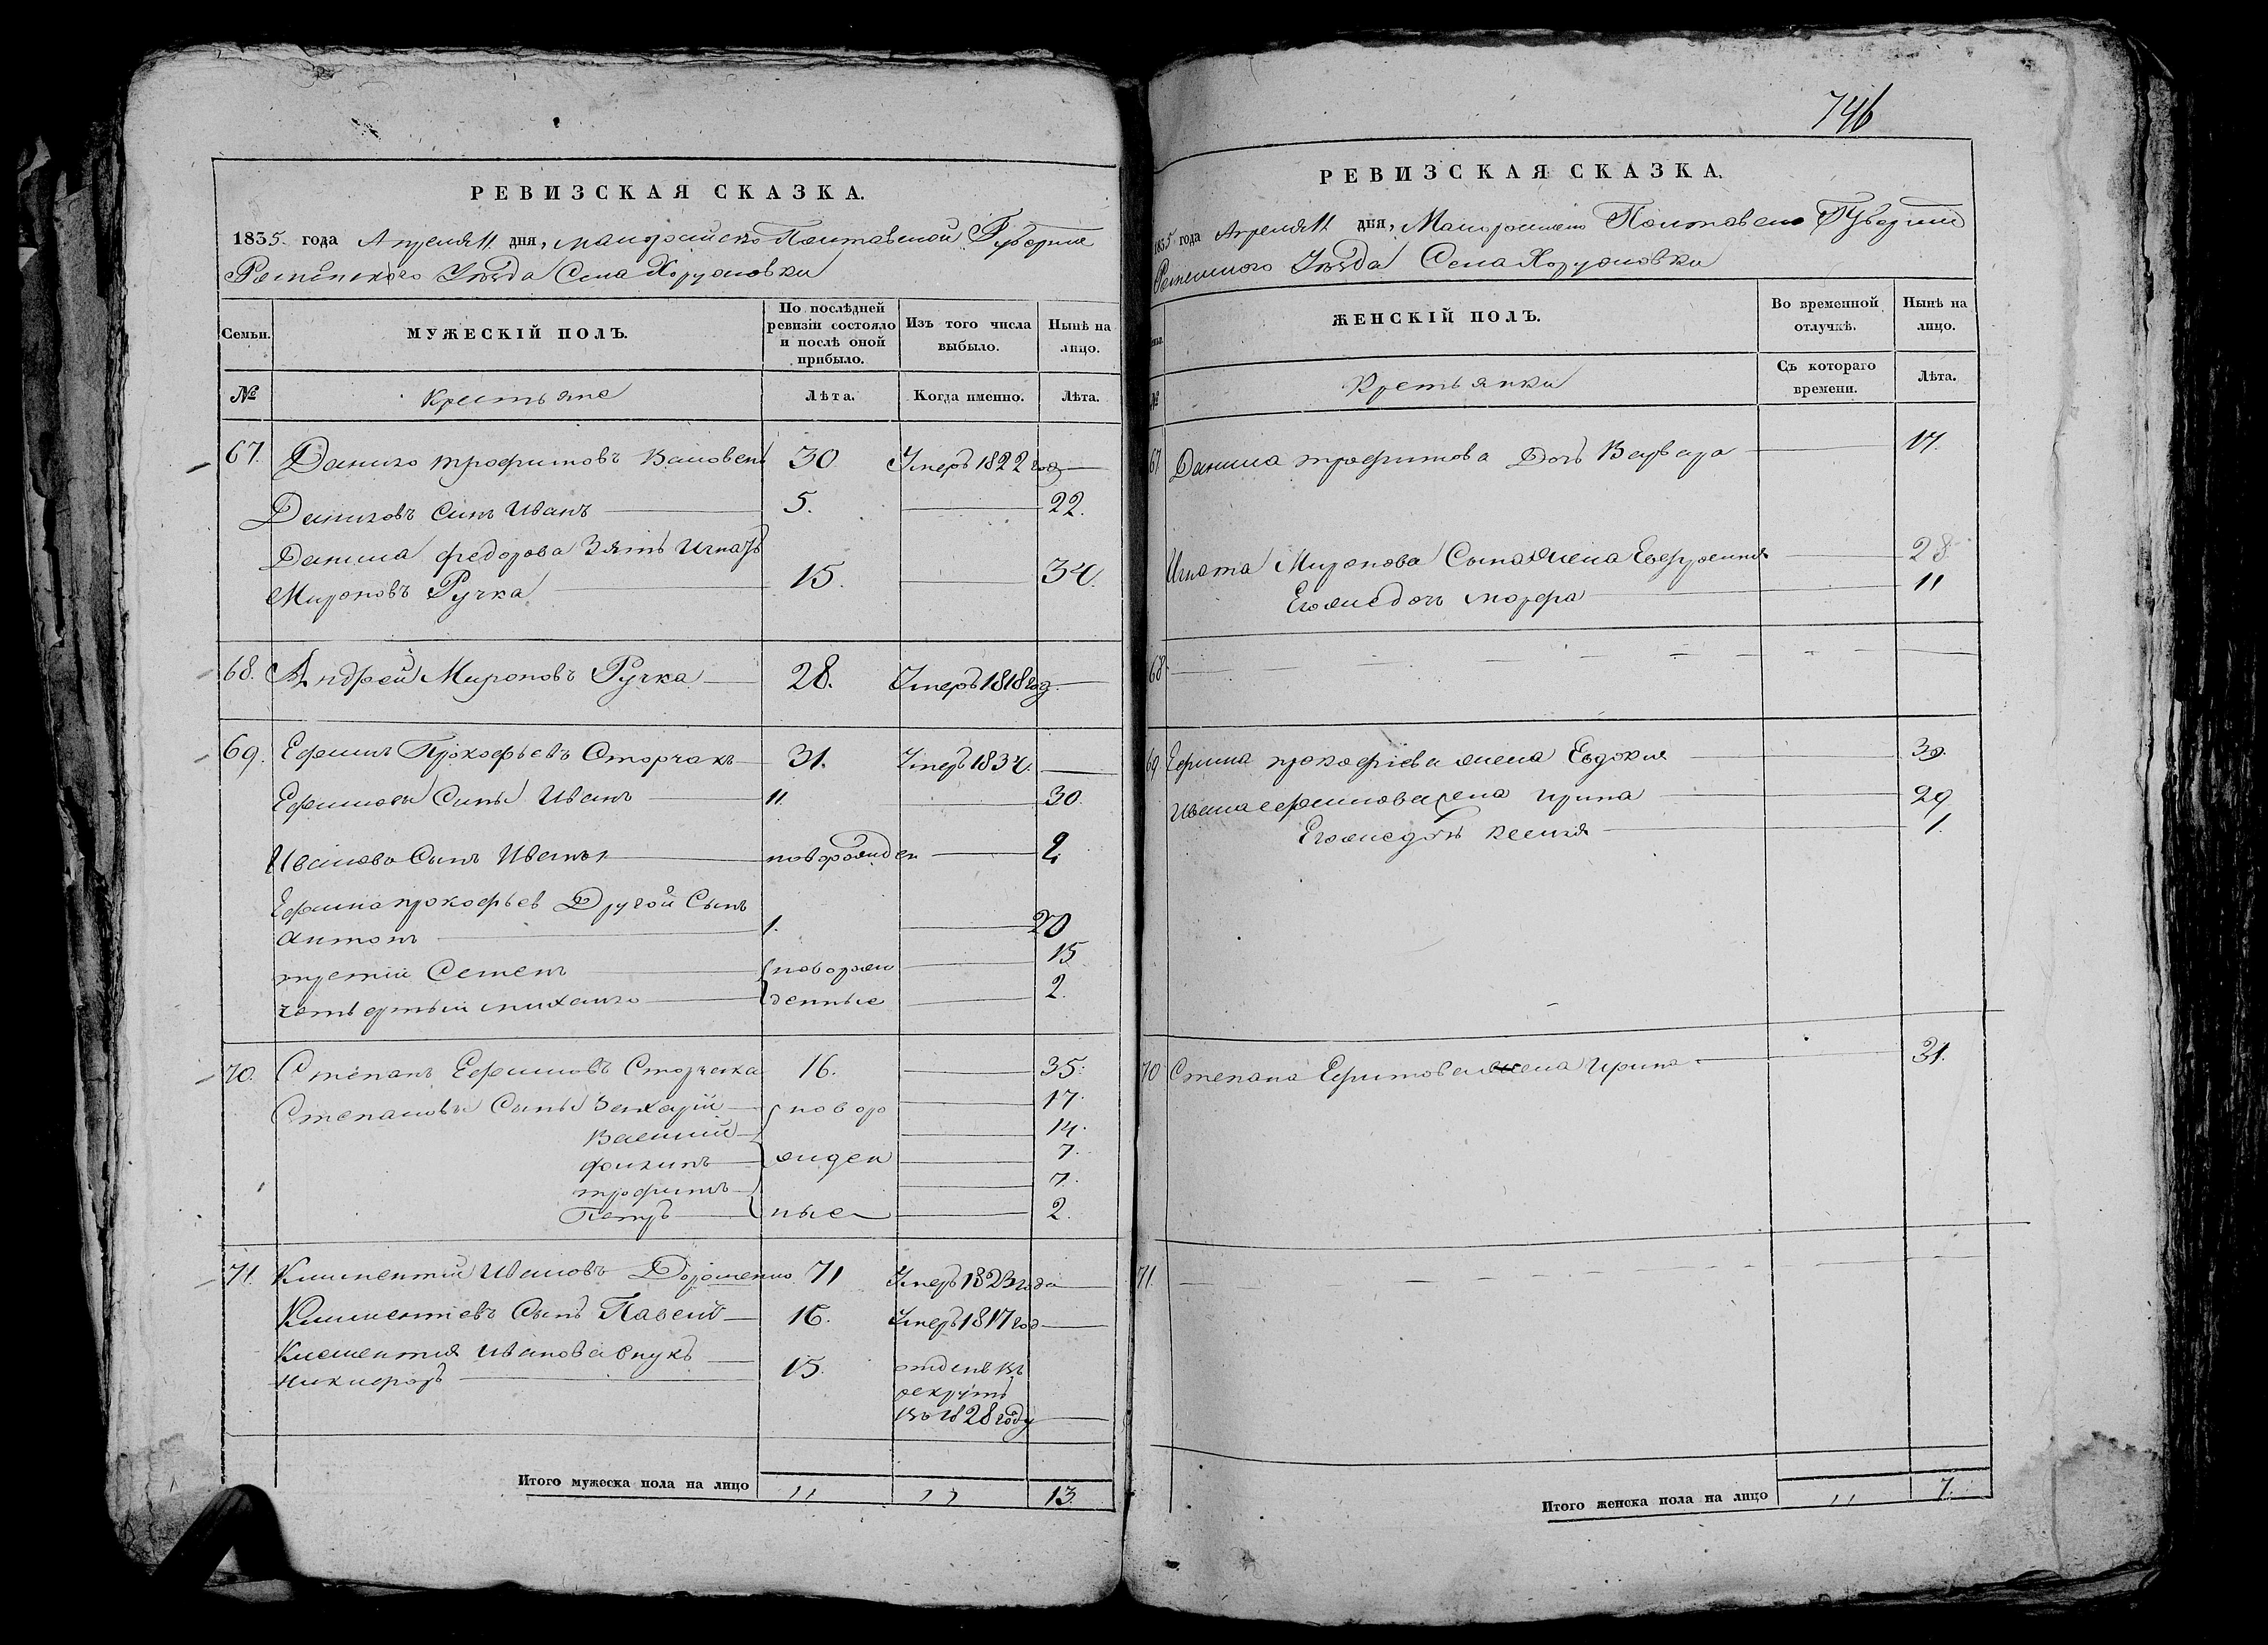 746
РЕВИЗСКАЯ СКАЗКА.
1835. года Апреля 11. дня, Малороссийско Полтавской Губернии
Роменского Уезда Села Хоружовки
Семьи.
МУЖЕСКІЙ ПОЛЪ.
По послѣдней ревизіи состояло и послѣ оной прибыло.
Изъ того числа выбыло.
Нынѣ на лицо.
№
Крестьяне
Лѣта.
Когда именно.
Лѣта.
67. Данило трофимовъ 30 Умеръ 1822 год
Даниловъ Синъ Иванъ 5. 22.
Данила федорова Зять Игнатъ
Мироновъ Ручка 15. 34.
68. Андрей Мироновъ Ручка 28. Умеръ 1818 год
69. Ефимъ Прокофьевъ Сторчакъ 31. Умеръ 1834.
Ефимовы Сины Иванъ 11. 30.
Иванова Сынъ Иванъ новорожден 2
Ефима прокофьев Другой Сынъ
Антонъ 1. 20
третій Семенъ новорож 15
четвертый михаило денные 2.
70. Степанъ Ефимовъ Сторчака 16. 35.
Степановы Сыны Захарій новоро 17.
Василий 14.
филипъ жден 7.
трофимъ 7.
Петръ ные 2.
71. Климентий Ивановъ Дорошенко 71 Умеръ 1823 года
Климентевъ Сынъ Павелъ 16. Умеръ 1817 год
Климентия Иванова внукъ
Никифоръ 15. отданъ въ
рекруты
въ 1828 году
Итого мужеска пола на лицо 11 11 13.
РЕВИЗСКАЯ СКАЗКА.
1835 года Апреля 11 дня, Малороссийско Полтавско Губернии
Роменского Уезда Села Хоружовки
ЖЕНСКІЙ ПОЛЪ.
Во временной отлучкѣ.
Нынѣ на лицо.
№
Крестьянки
Съ котораго времени.
Лѣта.
67 Данила трофимова Дочь Варвара 17.
Игната Миронова жена Евфросиния 28
Его же дочь 11
68.
69 Ефима прокофіева жена Евдокия 39.
Ивана ефимова жена Ирина 29.
Его же дочь Ксения 1.
70 Степана Ефимова жена Ирина 31.
71.
Итого женска пола на лицо 11 7.